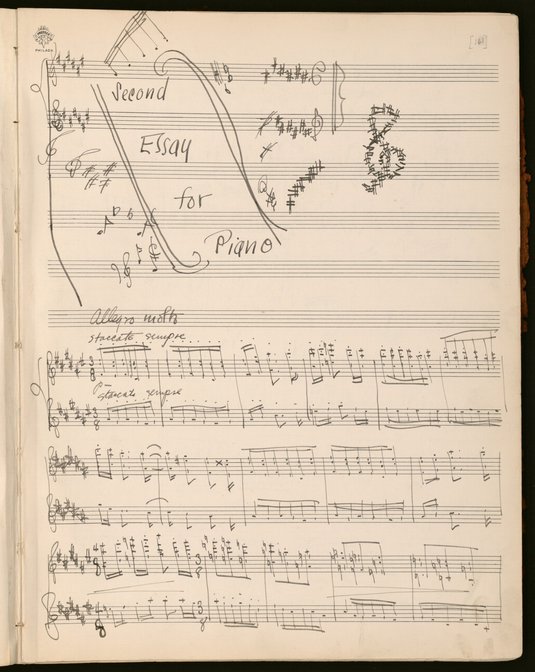 PHILADA
Second
Essay
for
Piano
Allegro molto
staccato sempre
staccato sempre